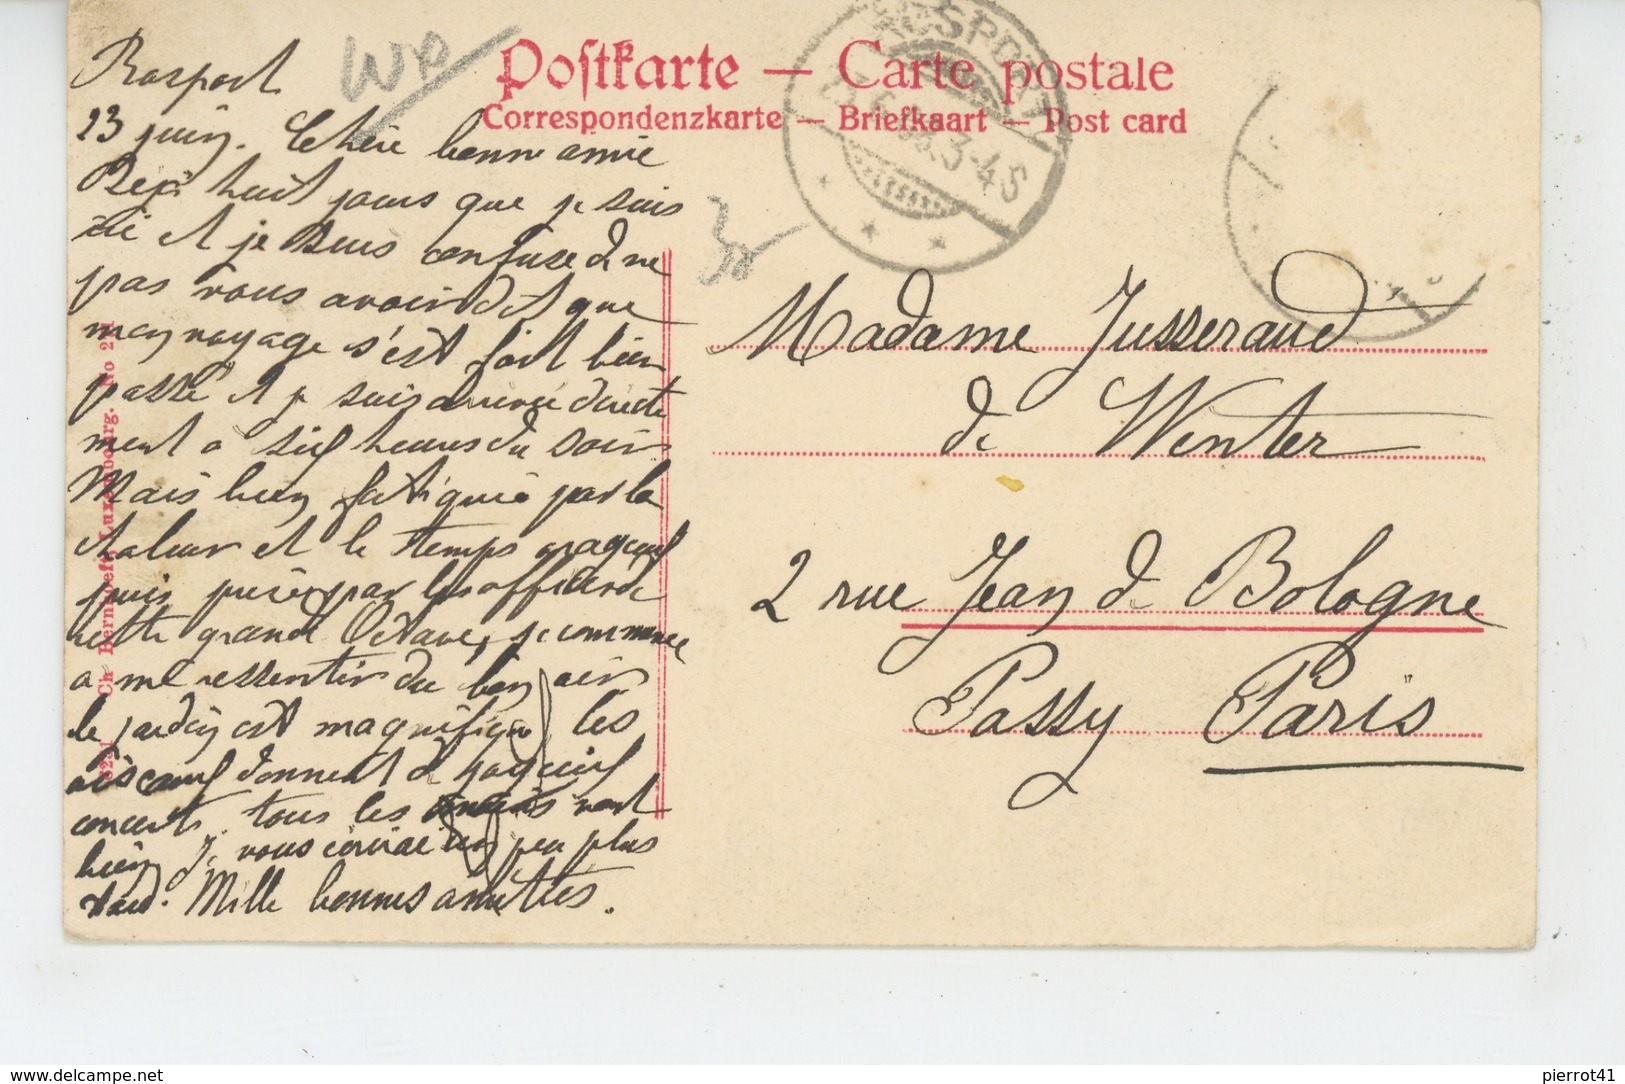 Postkarte — Carte postale
Correspondenzkarte — Briefkaart — Post card
Rosport
23 juin. Chère bonne amie
Déjà huit jours que je suis
ici et je suis confuse de ne
pas vous avoir dit que
mon voyage s'est fort bien
passé et je suis arrivée directe
ment a six heures du soir
Mais bien fatiguée par la
chaleur et le temps orageux
puis par les offices de
cette grande Octave, je commence
a me ressentir du bon air
le jardin est magnifique les
oiseaux donnent de joyeux
concerts, tous les amis vont
bien Je vous écrirai un peu plus
tard. Mille bonnes amitiés.
Madame Jusseraud
de Winter
2 rue Jean de Bologne
Passy Paris
Ch. Bernhoeft, Luxembourg. No
3-4 S
pierrot41
delcampe.net